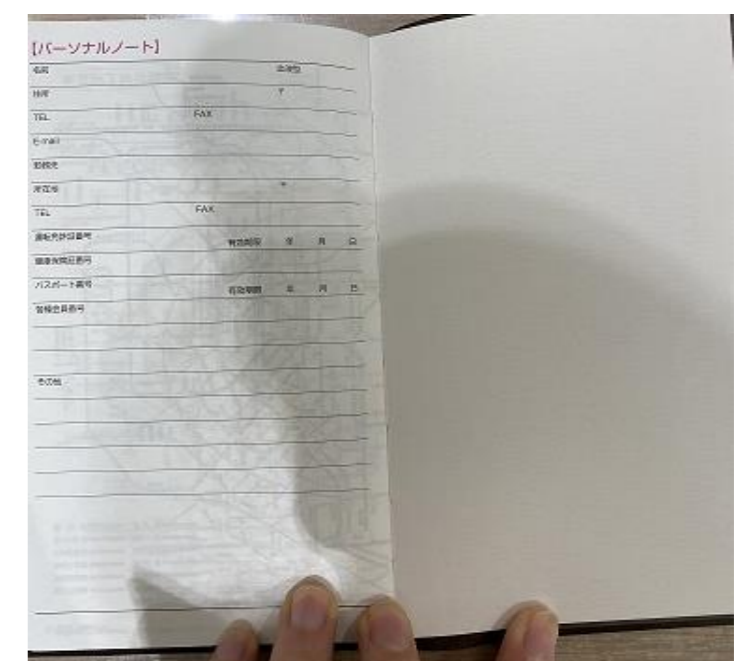 【パーソナルノート】
名前 血液型
住所 〒
TEL FAX
E-mail
勤務先
所在地 〒
TEL FAX
運転免許証番号 有効期限 年 月 日
健康保険証番号
パスポート番号 有効期限 年 月 日
各種会員番号
その他